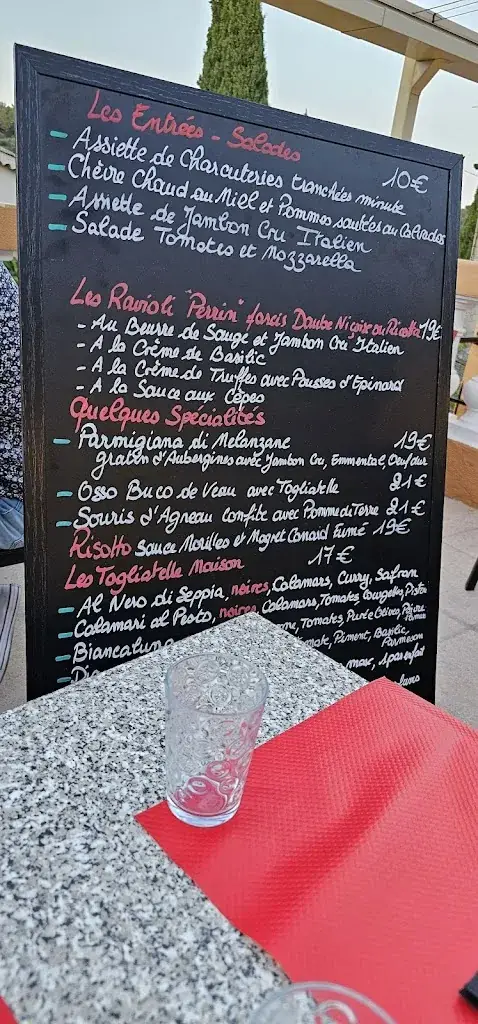 Les Entrées - Salades
- Assiette de Charcuteries tranchées minute 10€
- Chèvre Chaud au Miel et Pommes sautées au Calvados
- Assiette de Jambon Cru Italien
- Salade Tomates et Mozzarella
Les Ravioli "Perrin" farcis Daube Niçoise ou Ricotta 19€
- Au Beurre de Sauge et Jambon Cru Italien
- A la Crème de Basilic
- A la Crème de Truffes avec Pousses d'Epinard
- A la Sauce aux Cèpes
Quelques Spécialités
- Parmigiana di Melanzane 19€
gratin d'Aubergines avec Jambon Cru, Emmental, Oeuf dur
- Osso Buco de Veau avec Tagliatelle 21€
- Souris d'Agneau Confite avec Pomme de Terre 21€
Risotto Sauce Morilles et Magret Canard Fumé 19€
Les Tagliatelle Maison 17€
- Al Nero di Seppia, noires, Calamars, Curry, Safran
- Calamari al Pesto, noires Calamars, Tomates, Courgettes, Pistou
- Biancalun Tomates, Purée Olives, Poivre
Piment, Basilic, Parmesan